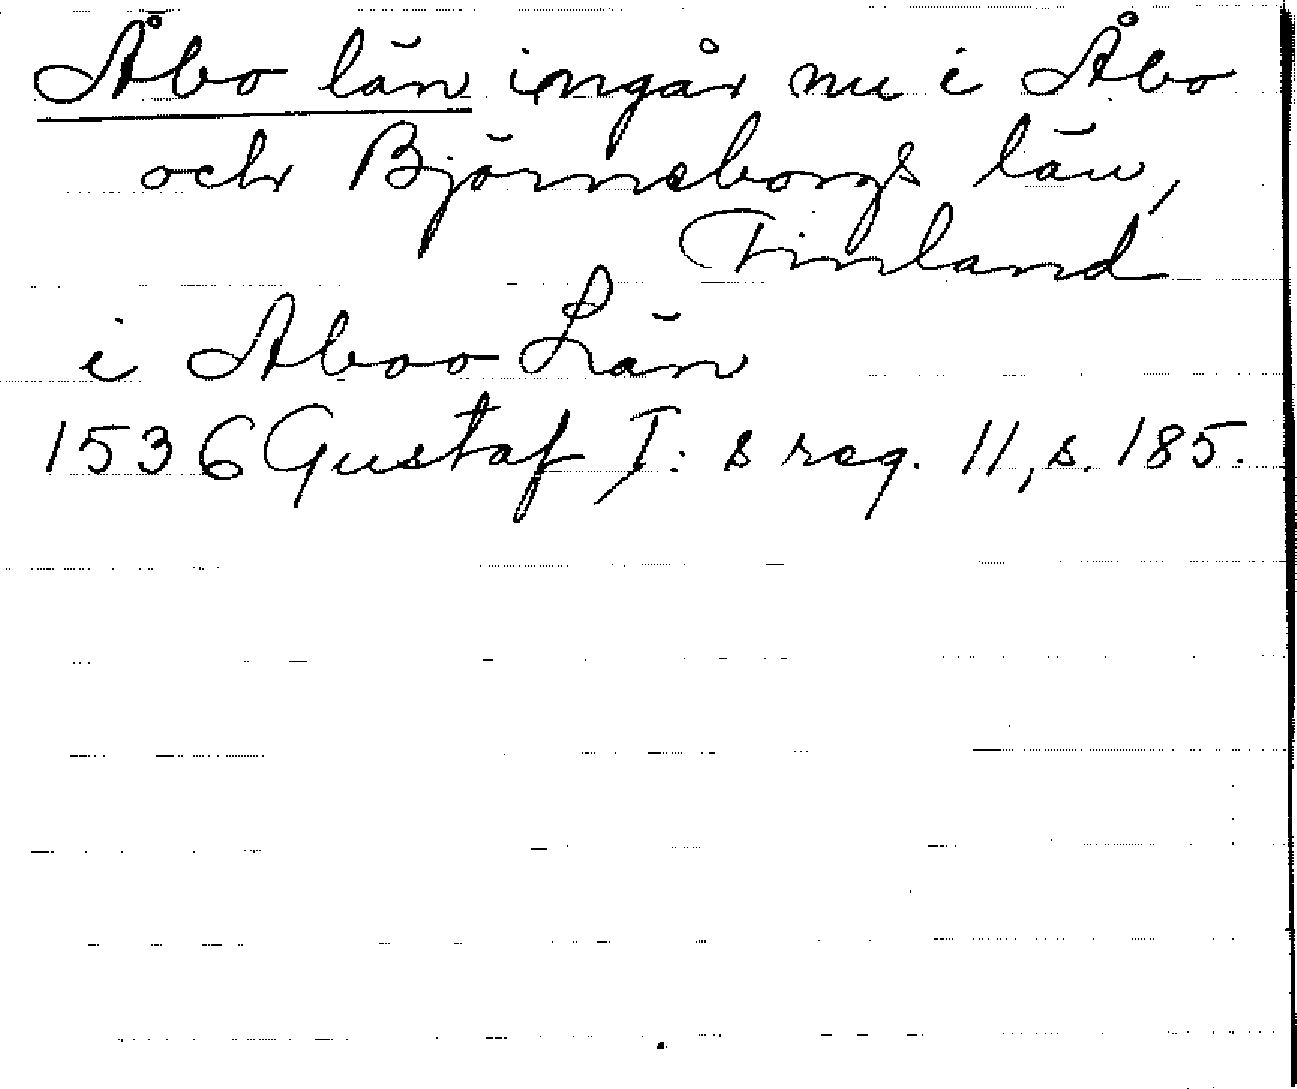 Åbo län ingår nu i Åbo
och Björneborgs län,
Finland
i Aboo Län
1536 Gustaf I: s reg. 11, s. 185.